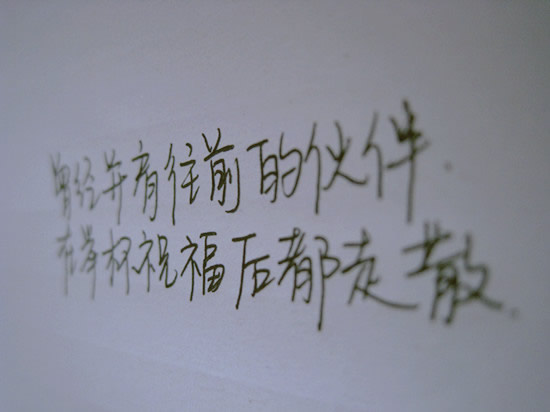 曾经并肩往前的伙伴.
在举杯祝福后都走散.